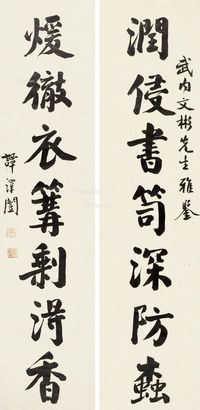 武内文彬先生雅鑒
潤侵書笥深防蠹
煖徹衣篝剩滯香
譚澤闓